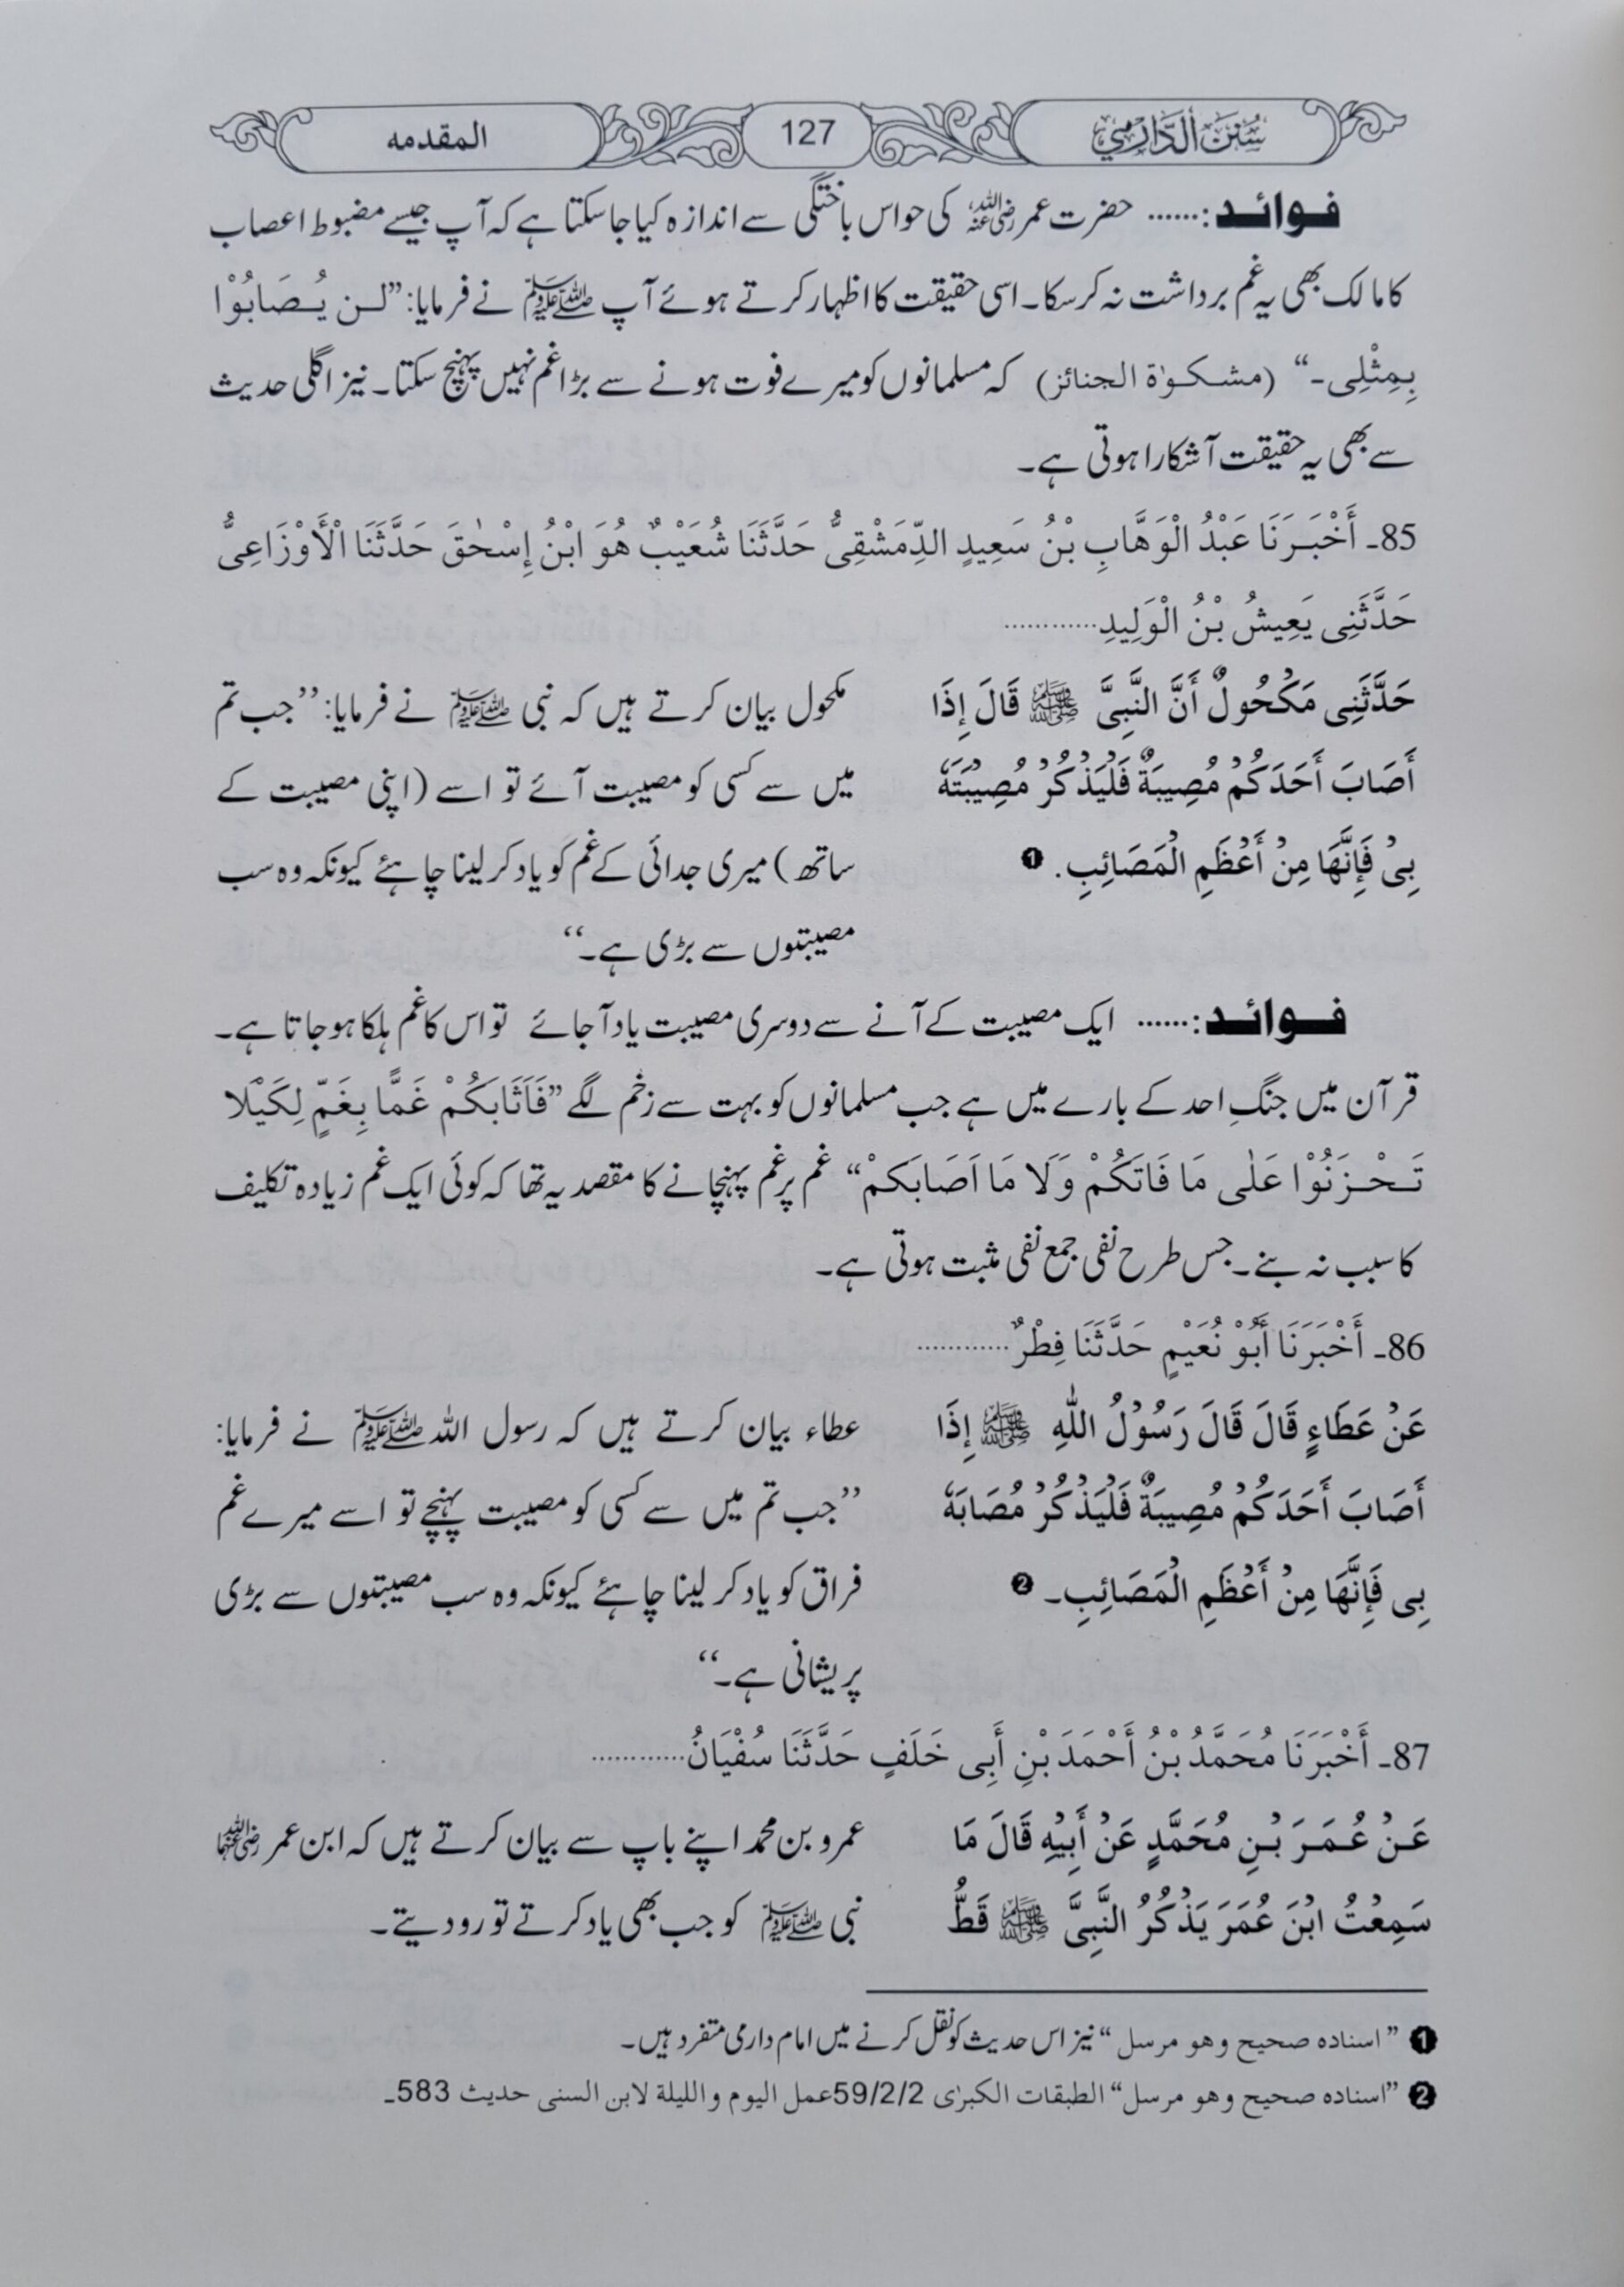 سُنَنُ الدَّارِمِي
127
المقدمه
فوائد:...... حضرت عمر رضی اللہ عنہ کی حواس باختگی سے اندازہ کیا جا سکتا ہے کہ آپ جیسے مضبوط اعصاب
کا مالک بھی یہ غم برداشت نہ کر سکا۔ اسی حقیقت کا اظہار کرتے ہوئے آپ ﷺ نے فرمایا: ”لن يُصَابُوْا
بِمِثْلِى۔“ (مشكوٰة الجنائز) کہ مسلمانوں کو میرے فوت ہونے سے بڑا غم نہیں پہنچ سکتا۔ نیز اگلی حدیث
سے بھی یہ حقیقت آشکارا ہوتی ہے۔
85۔ أَخْبَرَنَا عَبْدُ الْوَهَّابِ بْنُ سَعِيدٍ الدِّمَشْقِىُّ حَدَّثَنَا شُعَيْبٌ هُوَ ابْنُ إِسْحٰقَ حَدَّثَنَا الْأَوْزَاعِىُّ
حَدَّثَنِى يَعِيشُ بْنُ الْوَلِيدِ............
حَدَّثَنِى مَكْحُولٌ أَنَّ النَّبِىَّ ﷺ قَالَ إِذَا
أَصَابَ أَحَدَكُمْ مُصِيبَةٌ فَلْيَذْكُرْ مُصِيْبَتَهٗ
بِىْ فَإِنَّهَا مِنْ أَعْظَمِ الْمَصَائِبِ. ❶
مکحول بیان کرتے ہیں کہ نبی ﷺ نے فرمایا: ”جب تم
میں سے کسی کو مصیبت آئے تو اسے (اپنی مصیبت کے
ساتھ) میری جدائی کے غم کو یاد کر لینا چاہئے کیونکہ وہ سب
مصیبتوں سے بڑی ہے۔“
فوائد:...... ایک مصیبت کے آنے سے دوسری مصیبت یاد آ جائے تو اس کا غم ہلکا ہو جاتا ہے۔
قرآن میں جنگِ احد کے بارے میں ہے جب مسلمانوں کو بہت سے زخم لگے ”فَاَثَابَكُمْ غَمًّا بِغَمٍّ لِكَيْلَا
تَحْزَنُوْا عَلٰى مَا فَاتَكُمْ وَلَا مَا اَصَابَكمْ“ غم پر غم پہنچانے کا مقصد یہ تھا کہ کوئی ایک غم زیادہ تکلیف
کا سبب نہ بنے۔ جس طرح نفی جمع نفی مثبت ہوتی ہے۔
86۔ أَخْبَرَنَا أَبُوْ نُعَيْمٍ حَدَّثَنَا فِطْرٌ............
عَنْ عَطَاءٍ قَالَ قَالَ رَسُوْلُ اللّٰهِ ﷺ إِذَا
أَصَابَ أَحَدَكُمْ مُصِيبَةٌ فَلْيَذْكُرْ مُصَابَهٗ
بِى فَإِنَّهَا مِنْ أَعْظَمِ الْمَصَائِبِ۔ ❷
عطاء بیان کرتے ہیں کہ رسول اللہ ﷺ نے فرمایا:
”جب تم میں سے کسی کو مصیبت پہنچے تو اسے میرے غم
فراق کو یاد کر لینا چاہئے کیونکہ وہ سب مصیبتوں سے بڑی
پریشانی ہے۔“
87۔ أَخْبَرَنَا مُحَمَّدُ بْنُ أَحْمَدَ بْنِ أَبِى خَلَفٍ حَدَّثَنَا سُفْيَانُ............
عَنْ عُمَرَ بْنِ مُحَمَّدٍ عَنْ أَبِيْهِ قَالَ مَا
سَمِعْتُ ابْنَ عُمَرَ يَذْكُرُ النَّبِىَّ ﷺ قَطُّ
عمرو بن محمد اپنے باپ سے بیان کرتے ہیں کہ ابن عمر رضی اللہ عنہما
نبی ﷺ کو جب بھی یاد کرتے تو رو دیتے۔
❶ ”اسناده صحيح وهو مرسل“ نیز اس حدیث کو نقل کرنے میں امام دارمی متفرد ہیں۔
❷ ”اسناده صحيح وهو مرسل“ الطبقات الكبرٰى 59/2/2عمل اليوم والليلة لابن السنى حديث 583۔